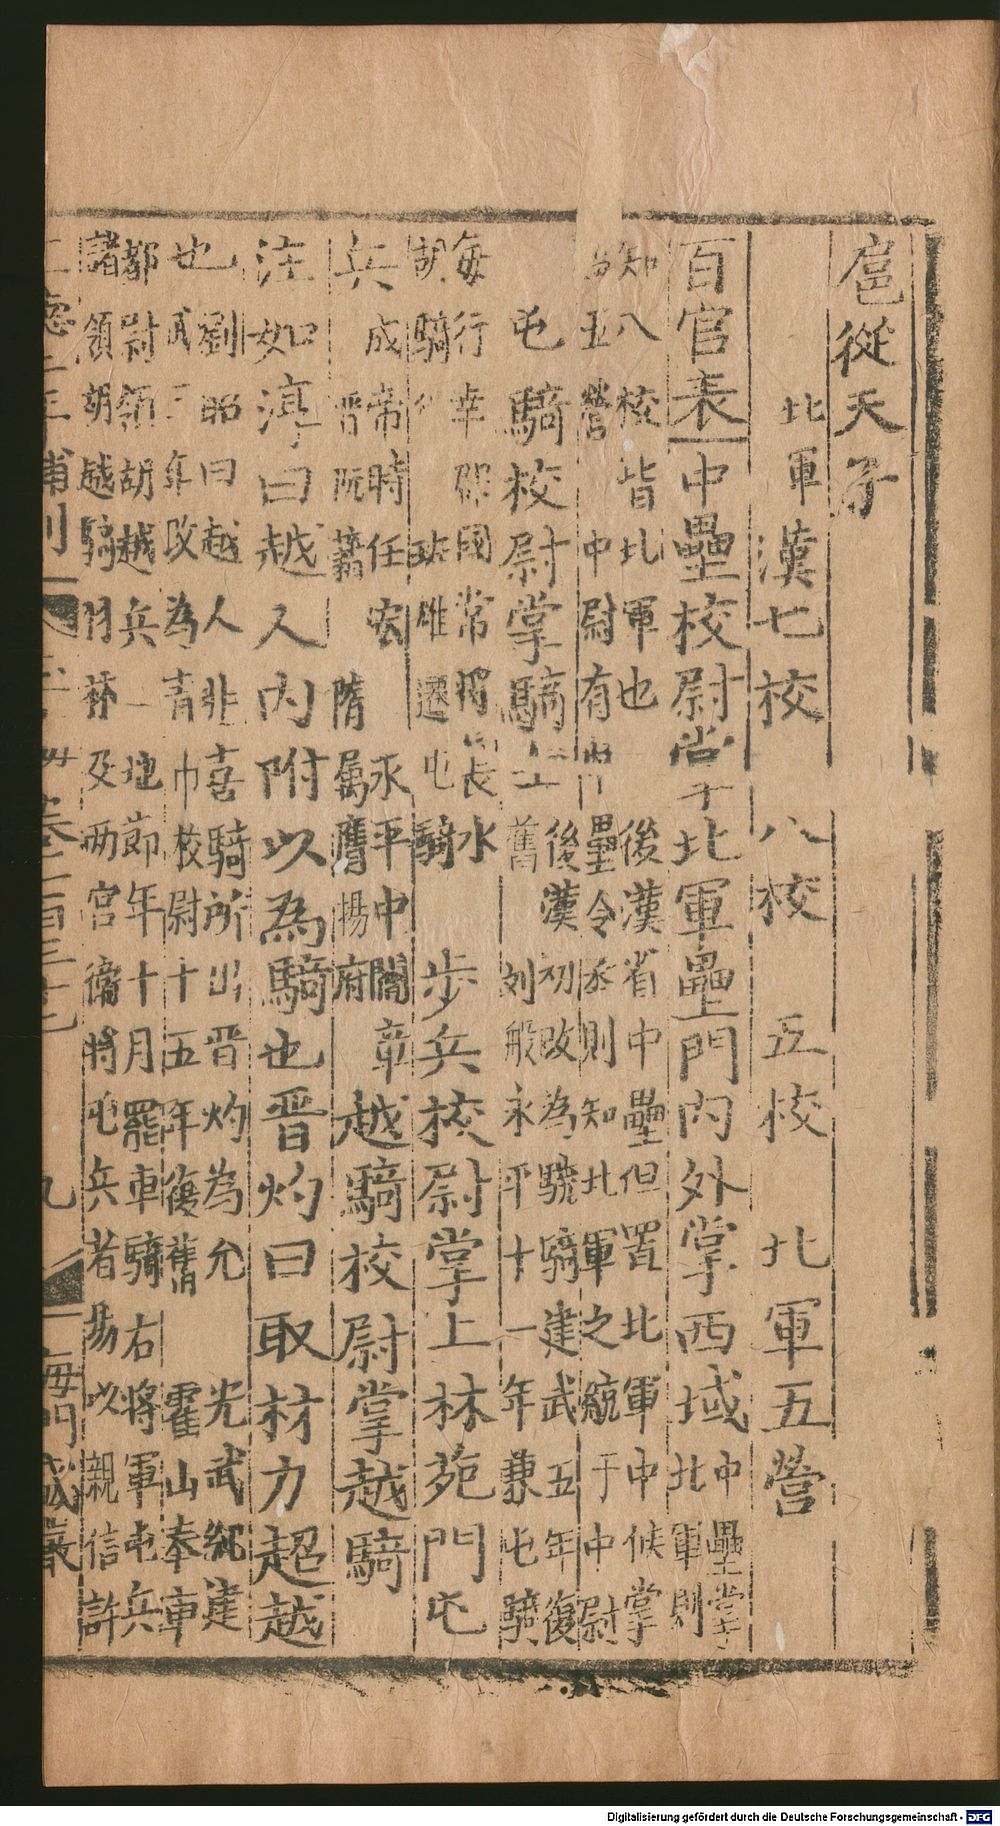 扈從天子
北軍 漢七校 八校 五校 北軍五營
百官表中壘校尉掌北軍壘門內外掌西域
中壘掌
北軍則
知八校皆北軍也 後漢省中壘但置北軍中候掌
五營 中尉有中壘令丞則知北軍之統于中尉
屯騎校尉掌騎士
後漢初改為驍騎建武五年復
舊 列般永平十一年兼屯騎
每行幸郡國常獨長水
胡騎 班雄遷屯騎
步兵校尉掌上林苑門屯
兵
成帝時任宏 永平中閻章
晉阮籍 隋屬鷹揚府
越騎校尉掌越騎
注如淳曰越人內附以為騎也晉灼曰取材力超越
也劉昭曰越人非善騎所出晉灼為允 光武紀建
武三年改為青巾校尉十五年復舊 霍山奉車
都尉領胡越兵 地節年十月罷車騎右將軍屯兵
諸領胡越騎羽林及兩宮衛將屯兵者易以親信許
卷一百三十七 九
Digitalisierung gefördert durch die Deutsche Forschungsgemeinschaft - DFG